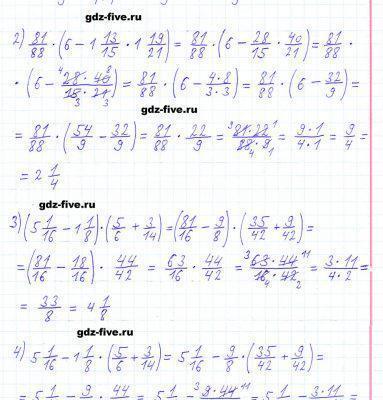 gdz-five.ru
2) 81/88 · (6 - 1 13/15 · 1 19/21) = 81/88 · (6 - 28/15 · 40/21) = 81/88 ·
· (6 - 28 · 40/15 · 21) = 81/88 · (6 - 4·8/3·3) = 81/88 · (6 - 32/9) =
gdz-five.ru
= 81/88 · (54/9 - 32/9) = 81/88 · 22/9 = 81·22/88·9 = 9·1/4·1 = 9/4 =
= 2 1/4
gdz-five.ru
3) (5 1/16 - 1 1/8) · (5/6 + 3/14) = (81/16 - 9/8) · (35/42 + 9/42) =
= (81/16 - 18/16) · 44/42 = 63/16 · 44/42 = 63 · 44/16 · 42 = 3·11/4·2 =
= 33/8 = 4 1/8
gdz-five.ru
4) 5 1/16 - 1 1/8 · (5/6 + 3/14) = 5 1/16 - 9/8 · (35/42 + 9/42) =